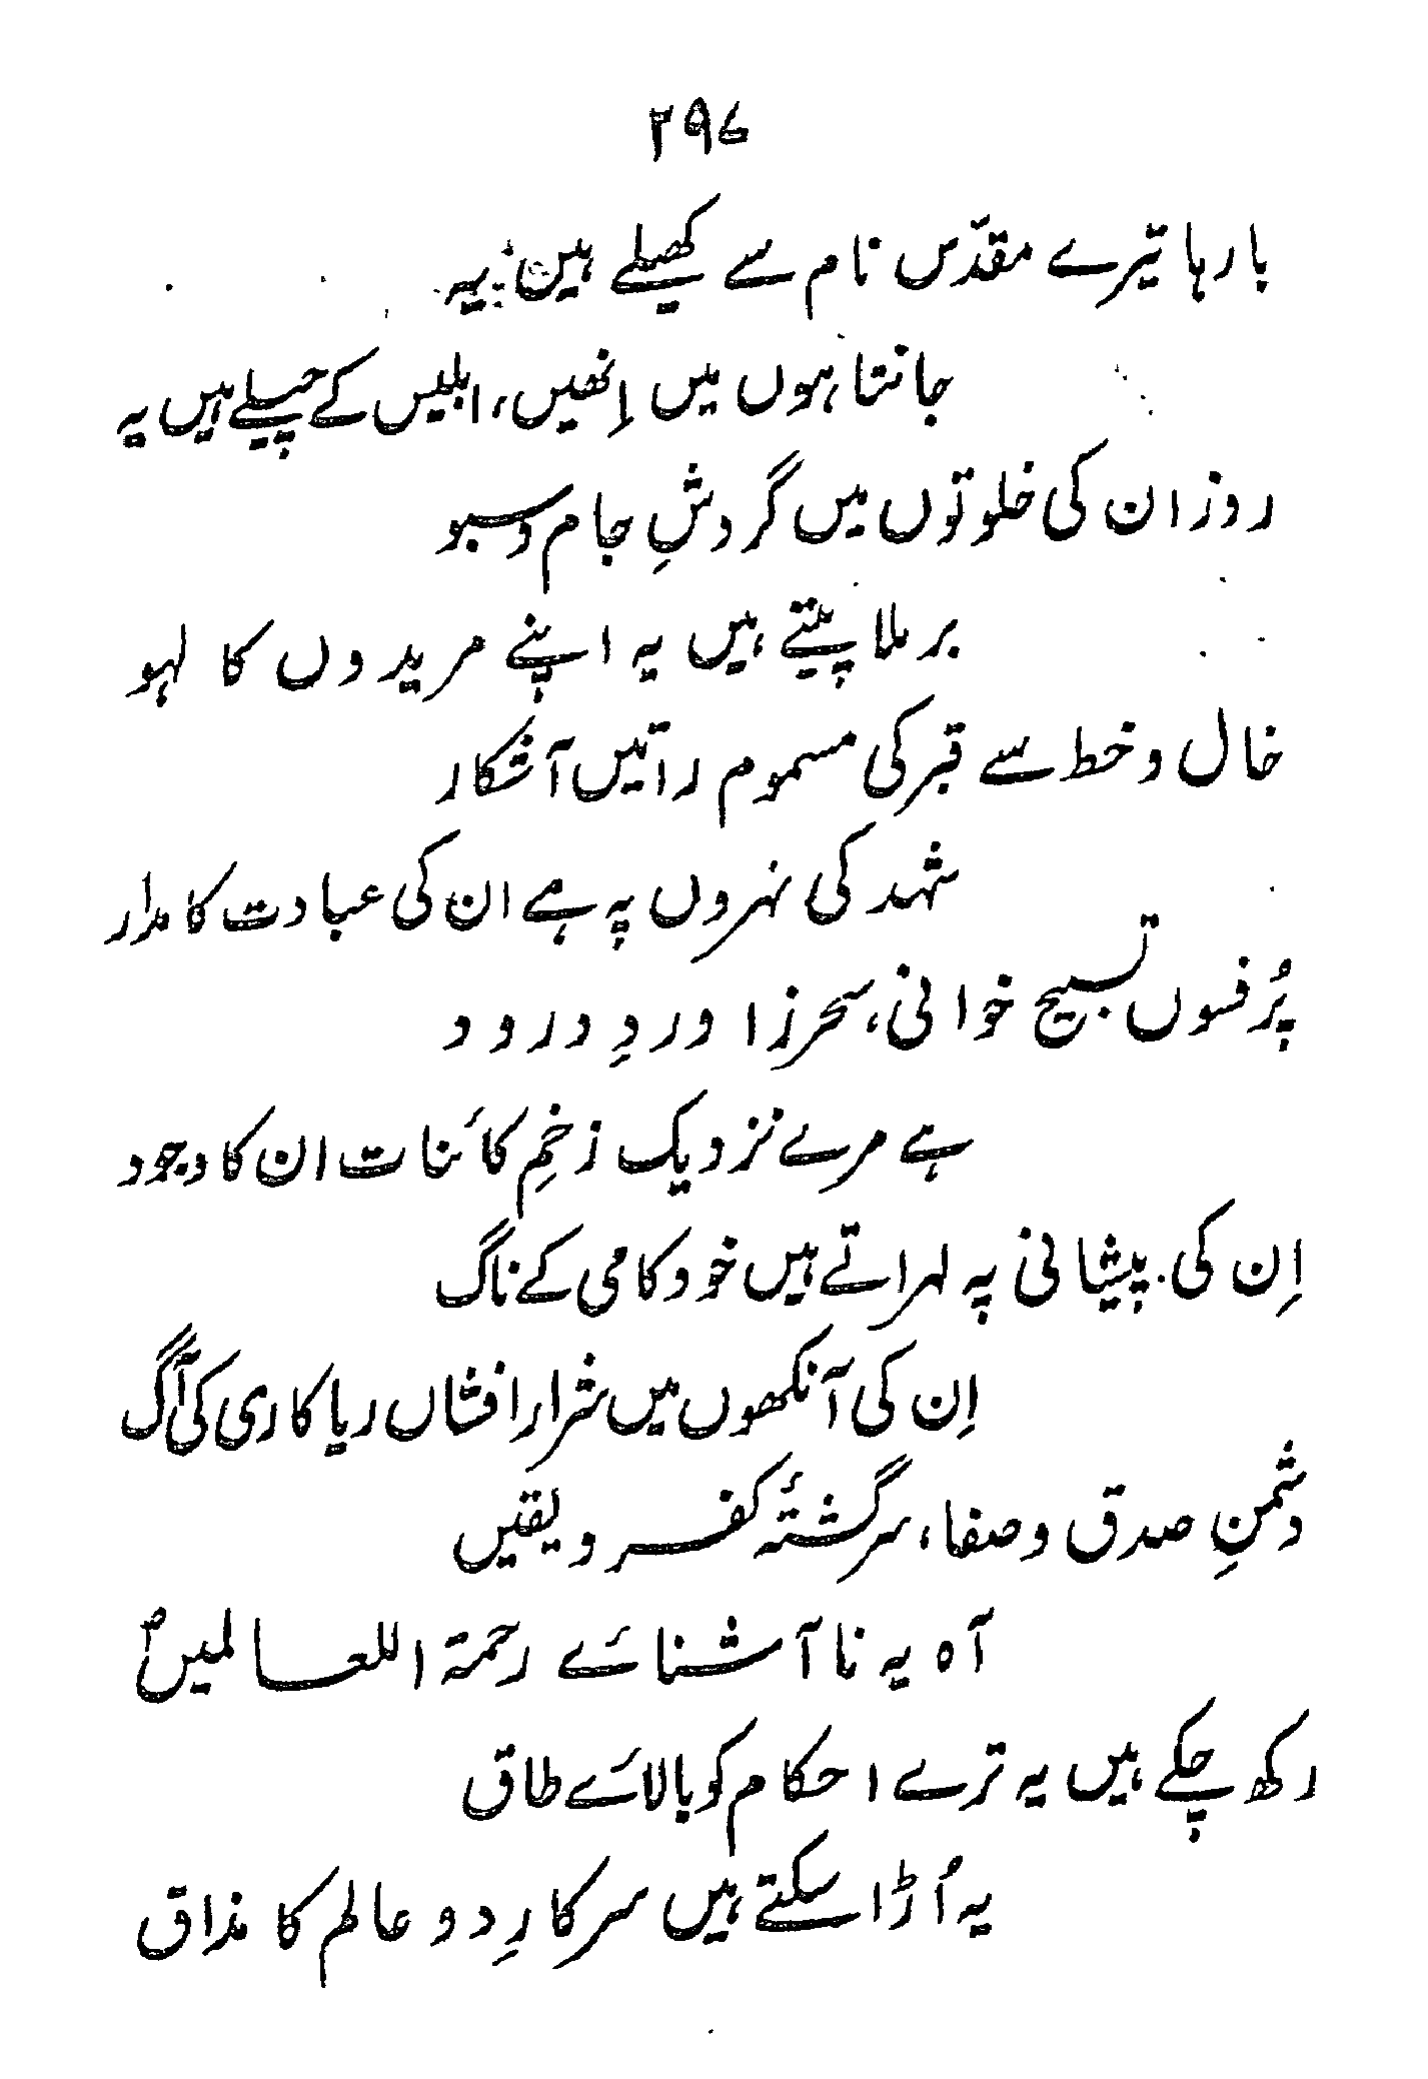 ۲۹۷
بارہا تیرے مقدّس نام سے کھیلے ہیں یہ
جانتا ہوں میں اِنھیں، ابلیس کے چیلے ہیں یہ
روز ان کی خلوتوں میں گردشِ جام و سبو
برملا پیتے ہیں یہ اپنے مریدوں کا لہو
خال و خط سے قبر کی مسموم راتیں آشکار
شہد کی نہروں پہ ہے ان کی عبادت کا مدار
پُرفسوں تسبیح خوانی، سحرزا وردِ درود
ہے مرے نزدیک زخمِ کائنات ان کا وجود
اِن کی پیشانی پہ لہراتے ہیں خود کامی کے ناگ
اِن کی آنکھوں میں شرار افشاں ریاکاری کی آگ
دشمنِ صدق و صفا، سرگشتۂ کفر و یقیں
آہ یہ ناآشنائے رحمۃ اللعالمیںؐ
رکھ چکے ہیں یہ ترے احکام کو بالائے طاق
یہ اُڑا سکتے ہیں سرکارِ دو عالم کا مذاق